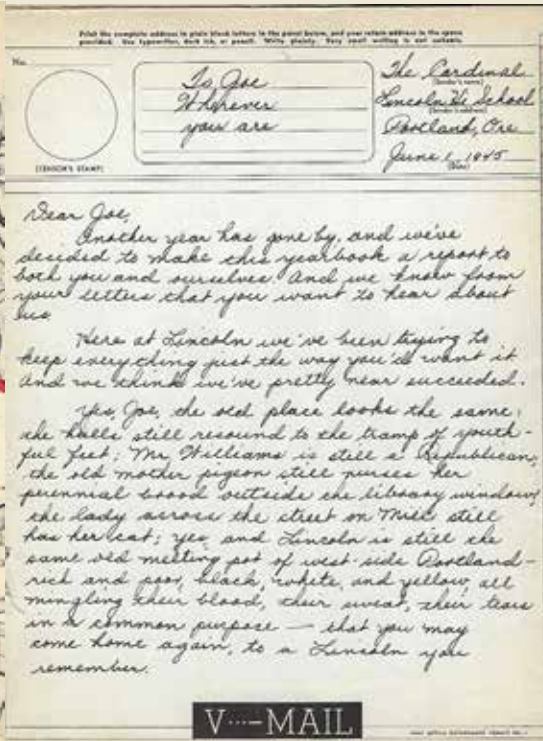 Print the complete address in plain block letters in the panel below, and your return address in the space
provided. Use typewriter, dark ink, or pencil. Write plainly. Very small writing is not suitable.
No.
(CENSOR'S STAMP)
To Joe
Wherever
you are
The Cardinal
(Sender's name)
Lincoln Hi School
(Sender's address)
Portland, Ore
June 1, 1945
(Date)
Dear Joe,
Another year has gone by, and we've
decided to make this yearbook a report to
both you and ourselves. And we know from
your letters that you want to hear about
us
Here at Lincoln we've been trying to
keep everything just the way you'd want it
and we think we've pretty near succeeded.
Yes, Joe, the old place looks the same;
the halls still resound to the tramp of youth-
ful feet; Mr. Williams is still a Republican;
the old mother pigeon still nurses her
perennial brood outside the library window;
the lady across the street on Mill still
has her cat; yes, and Lincoln is still the
same old melting pot of west-side Portland—
rich and poor, black, white, and yellow, all
mingling their blood, their sweat, their tears
in a common purpose — that you may
come home again, to a Lincoln you
remember.
V···—MAIL